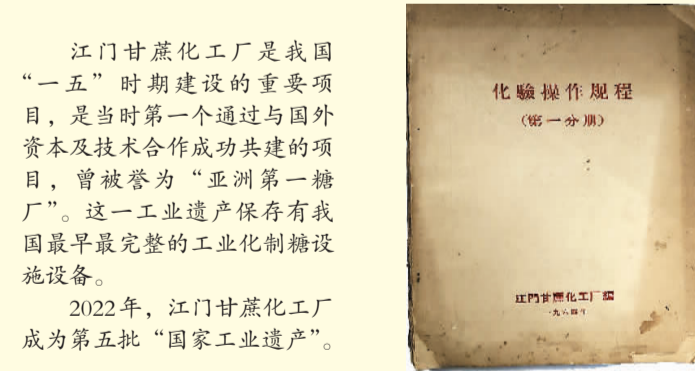 江门甘蔗化工厂是我国
“一五”时期建设的重要项
目，是当时第一个通过与国外
资本及技术合作成功共建的项
目，曾被誉为“亚洲第一糖
厂”。这一工业遗产保存有我
国最早最完整的工业化制糖设
施设备。
2022年，江门甘蔗化工厂
成为第五批“国家工业遗产”。
化驗操作规程
(第一分册)
江門甘蔗化工厂編
一九六四年